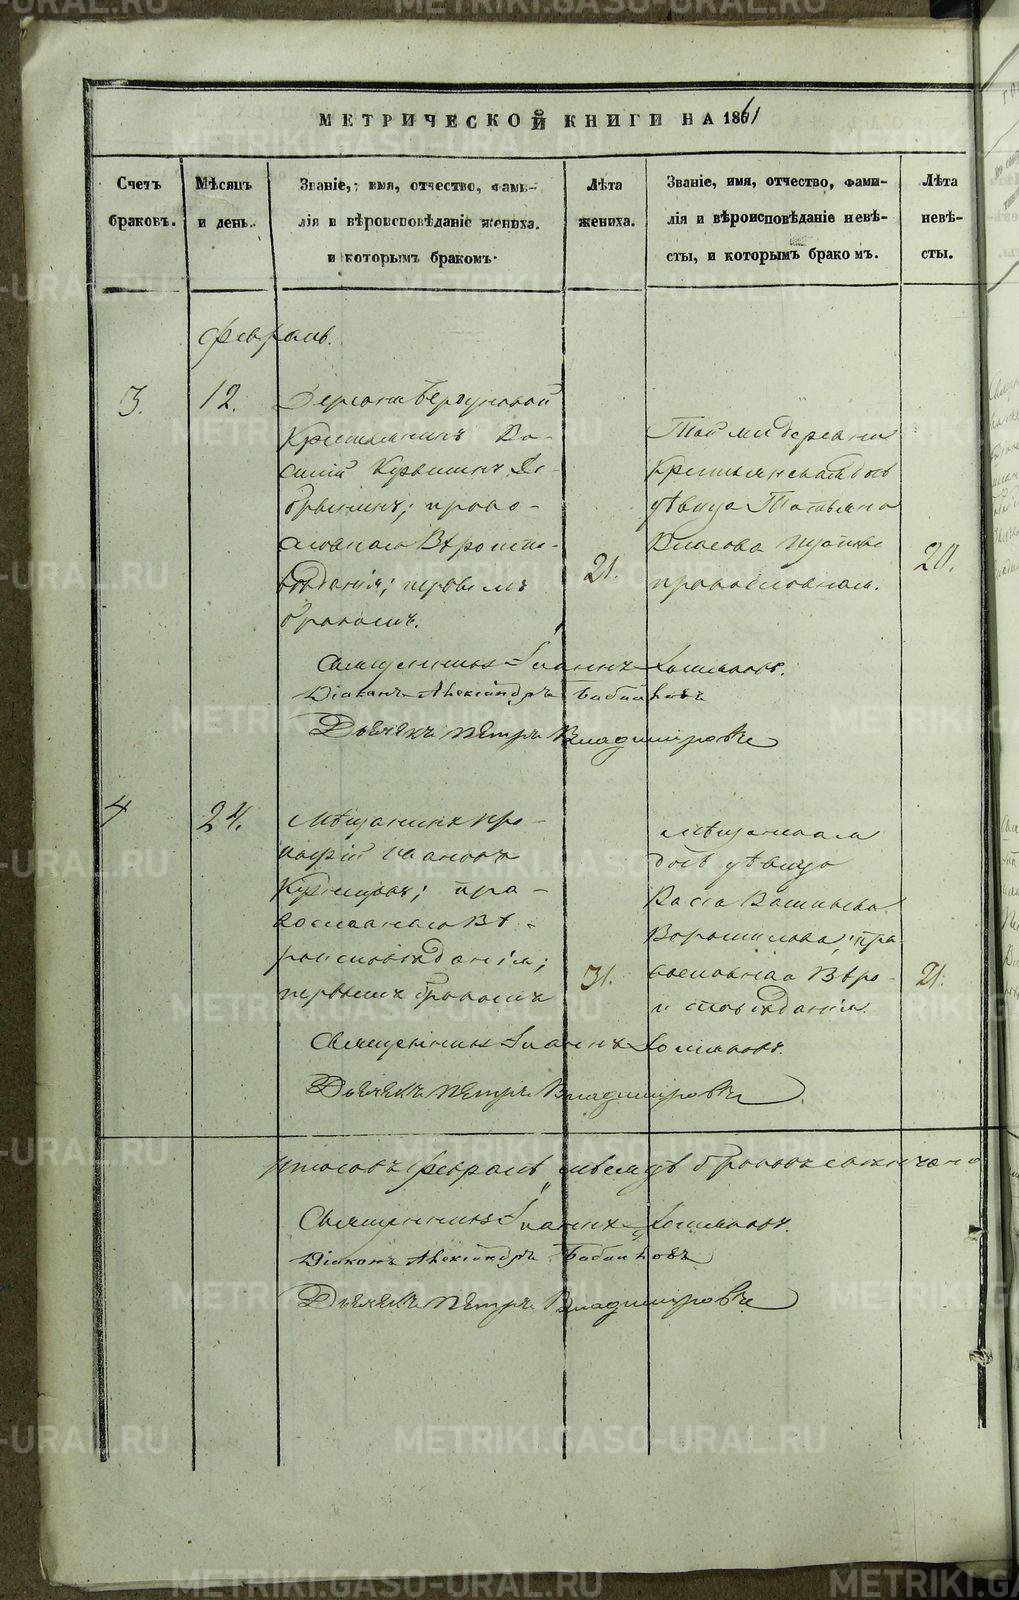 МЕТРИЧЕСКОЙ КНИГИ НА 1861
Счетъ браковъ.
Мѣсяцъ и день.
Званіе, имя, отчество, фами-
лія и вѣроисповѣданіе жениха.
и которымъ бракомъ.
Лѣта жениха.
Званіе, имя, отчество, фами-
лія и вѣроисповѣданіе невѣ-
сты, и которымъ бракомъ.
Лѣта невѣ-
сты.
Февраль.
3.
12.
Деревни
Крестьянинъ Ва-
силій
право-
славнаго Вѣроиспо-
вѣданія; первымъ
бракомъ.
21.
Той же деревни
Крестьянская доч
дѣвица Татьяна
Власова
православнаго.
20.
Священникъ Іоаннъ Хомяковъ.
Діаконъ Александръ
Дьячекъ Петръ Владиміровъ
4
24.
Мѣщанинъ Про-
кофій Ивановъ
Кузнецовъ; пра-
вославнаго Вѣ-
роисповѣданія;
первымъ бракомъ
31.
Мѣщанская
дочь дѣвица
Васса Васильева
Ворошилова, пра
вославнаго Вѣро-
исповѣданія.
21.
Священникъ Іоаннъ Хомяковъ.
Дьячекъ Петръ Владиміровъ
Итого въ Февралѣ мѣсяцѣ браковъ
Священникъ Іоаннъ Хомяковъ.
Діаконъ Александръ
Дьячекъ Петръ Владиміровъ
METRIKI.GASO-URAL.RU